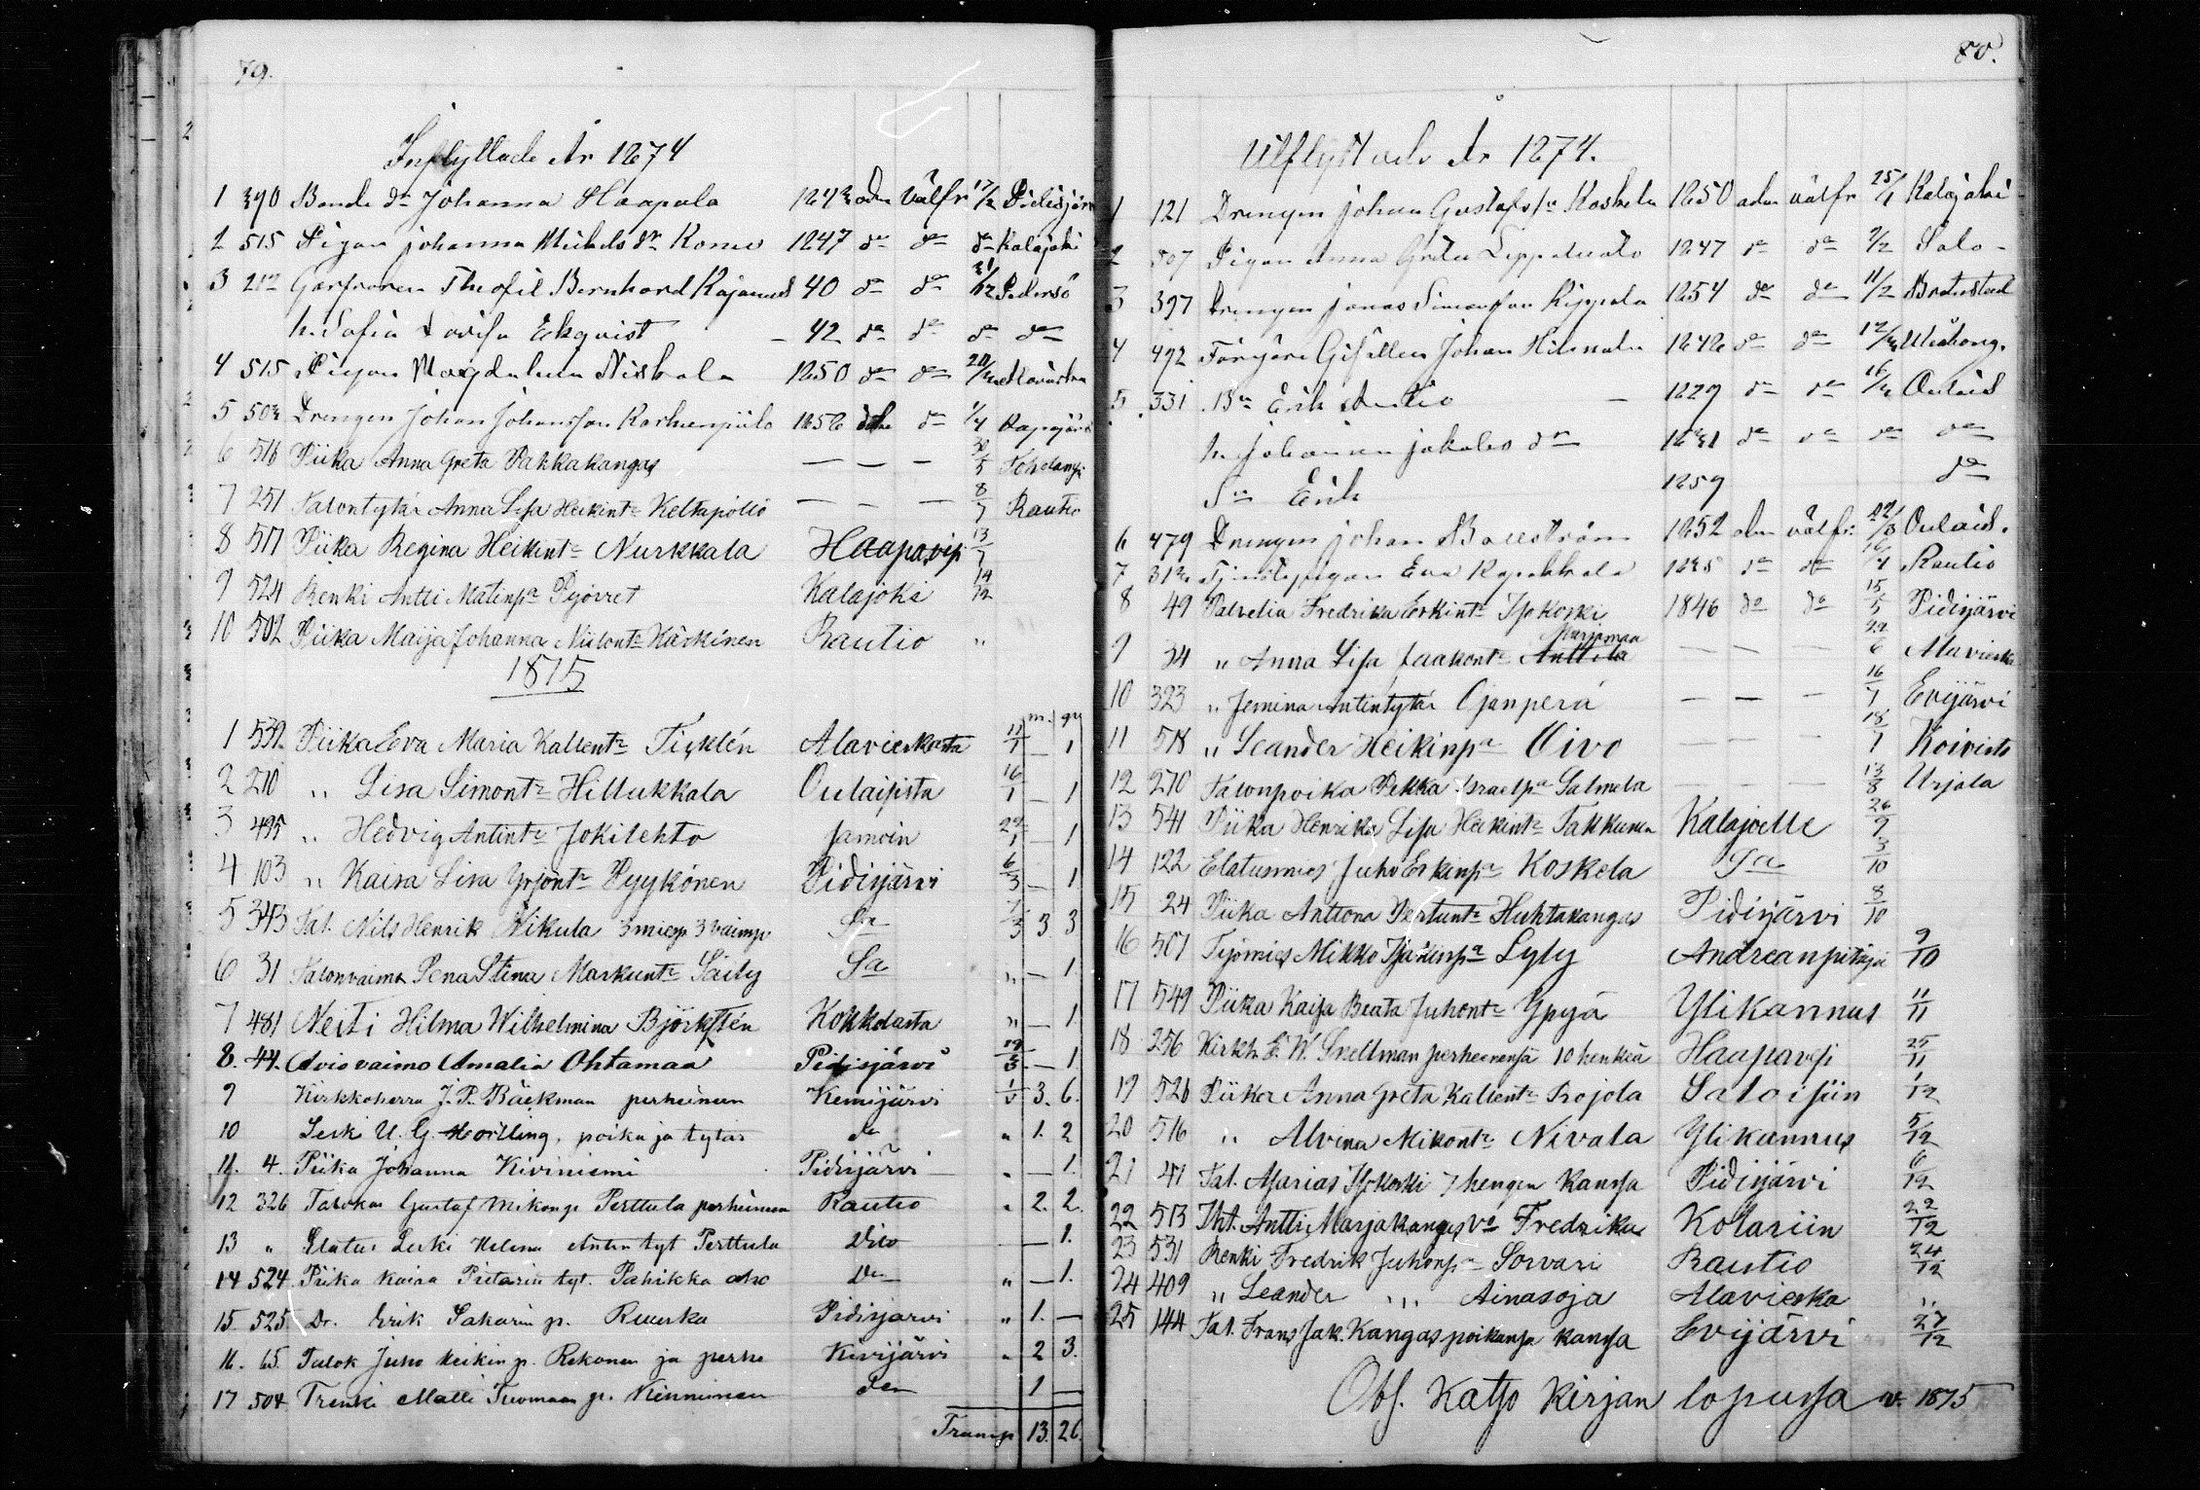 79.
Inflyttade År 1874
1 390 Bonde dr Johanna Haapala 1843 adm välfr 17/2 Pidisjärvi
2 515 Pigan Johanna Michels dr Kome 1847 do do do Kalajoki
3 212 Garfvaren Theofil Bernhard Kajanus 40 do do 31/12 Pedersö
h. Sofia Lovisa Ekqvist - 42 do do do do
4 515 Pigan Magdalena Niskala 1850 do do Alavieska
5 503 Drengen Johan Johansson Karhunpiilo 1856 do 1/4
6 516 Piika Anna Greta Pakkakangas — — — 30/5
7 251 Talontytär Anna Lisa Heikint= Keltapöliö — — — 8/7 Rautio
8 517 Piika Regina Heikint= Nurkkala Haapavesi 13/7
9 524 Renki Antti Matinpa Pyörret Kalajoki 14/12
10 502 Piika Maija Johanna Niilont= Kärkinen Rautio "
1875
m. qv
1 532 Piika Eva Maria Kallent= Ticklén Alavieskasta 11/1 — 1
2 210 " Lisa Simont= Hillukkala Oulaisista 16/1 — 1
3 495 " Hedvig Antint= Jokilehto samoin 29/1 — 1
4 103 " Kaisa Lisa Yrjönt= Pyykönen Pidisjärvi 6/3 — 1.
5 343 Tal. Nils Henrik Nikula 3 miesp 3 vaimp Sa 7/3 3 3
6 31 Talonvaimo Lena Stina Markunt= Säily Sa " — 1
7 481 Neiti Hilma Wilhelmina Björkstén Kokkolasta " — 1.
8. 44. Aviovaimo Amalia Ohtamaa Pidisjärvi 19/3 — 1.
9 Kirkkoherra J. P. Bäckman perheineen Kemijärvi 1/5 3. 6.
10 Leski U. G. Hoilling, poika ja tytär do " 1. 2
11. 4. Piika Johanna Kiviniemi Pidisjärvi " — 1.
12 326 Talokas Gustaf Mikonp. Perttula perheineen Rautio " 2. 2.
13 " Elatus Leski Helena Antin tyt Perttula Dito — 1.
14 524 Piika Kaisa Pietarin tyt. Pahikka aho Do " — 1.
15 525 Dr. Erik Sakarin p. Ruuska Pidisjärvi " 1. —
16. 65. Talok Juho Heikin p. Rekonen ja perhe Kivijärvi " 2 3.
17 504 Trenki Matti Tuomaan p. Kinnunen do 1 —
Transp 13. 26.
80.
Utflyttade År 1874.
1 121 Drengen Johan Gustafs sn Koskela 1850 adm välfr 25/1 Kalajoki
2 507 Pigan Anna Greta Leppälualo 1847 do do 2/2 Salo -
3 397 Drengen Jonas Simonsson Kippola 1854 do do 11/2 Brahestad
4 492 Färgare Gesällen Johan Hilsmala 1848 do do Uleåborg.
5 331 Bn Erik Autio — 1829 do do Oulais
h. Johanna Jakobs dr 1831 do do do do
Sn Erik 1859 do
6 479 Drengen Johan Ballström 1852 adm välfr. Oulais.
7 Eva 1835 do do Rautio
8 49 Palvelia Fredrika Erkint= Isokoski 1846 do do 15/5 Pidisjärvi
9 34 " Anna Lisa Jaakont= Anttila Marjamaa — — — 22/6 Alavieska
10 323 " Jemina Antintytär Ojanperä — — — 16/7 Evijärvi
11 518 " Leander Heikinpa Oivo — — — 18/7 Koivisto
12 270 Talonpoika Pekka Israelpa Salmela — — — 13/8 Urjala
13 541 Piika Henrika Lisa Heikint= Takkunen Kalajoelle 26/9
14 122 Elatusmies Juho Erkinpa Koskela Sa 3/10
15 24 Piika Anttona Pertunt= Huhtakangas Pidisjärvi 8/10
16 501 Työmies Mikko Lyly Andreanpitäjä 9/10
17 549 Piika Kaisa Beata Juhont= Ypyä Ylikannus 11/11
18 256 Kirkh. E. W. Snellman perheinensä 10 henkeä Haapavesi 25/11
19 526 Piika Anna Greta Kallent= Projola Saloisiin 1/12
20 516 " Alvina Mikont= Nivala Ylikannus 5/12
21 41 Tal. Marias Isokoski 7 hengen kanssa Pidisjärvi 6/12
22 513 Iht. Antti Marjakangas vo Fredrika Kolariin 22/12
23 531 Renki Fredrik Juhonpa Sorvari Rautio 24/12
24 409 " Leander " " Ainasoja Alavieska "
25 144 Tal. Frans Jak. Kangas poikansa kanssa Evijärvi 27/12
Obs. Katso Kirjan lopussa v. 1875